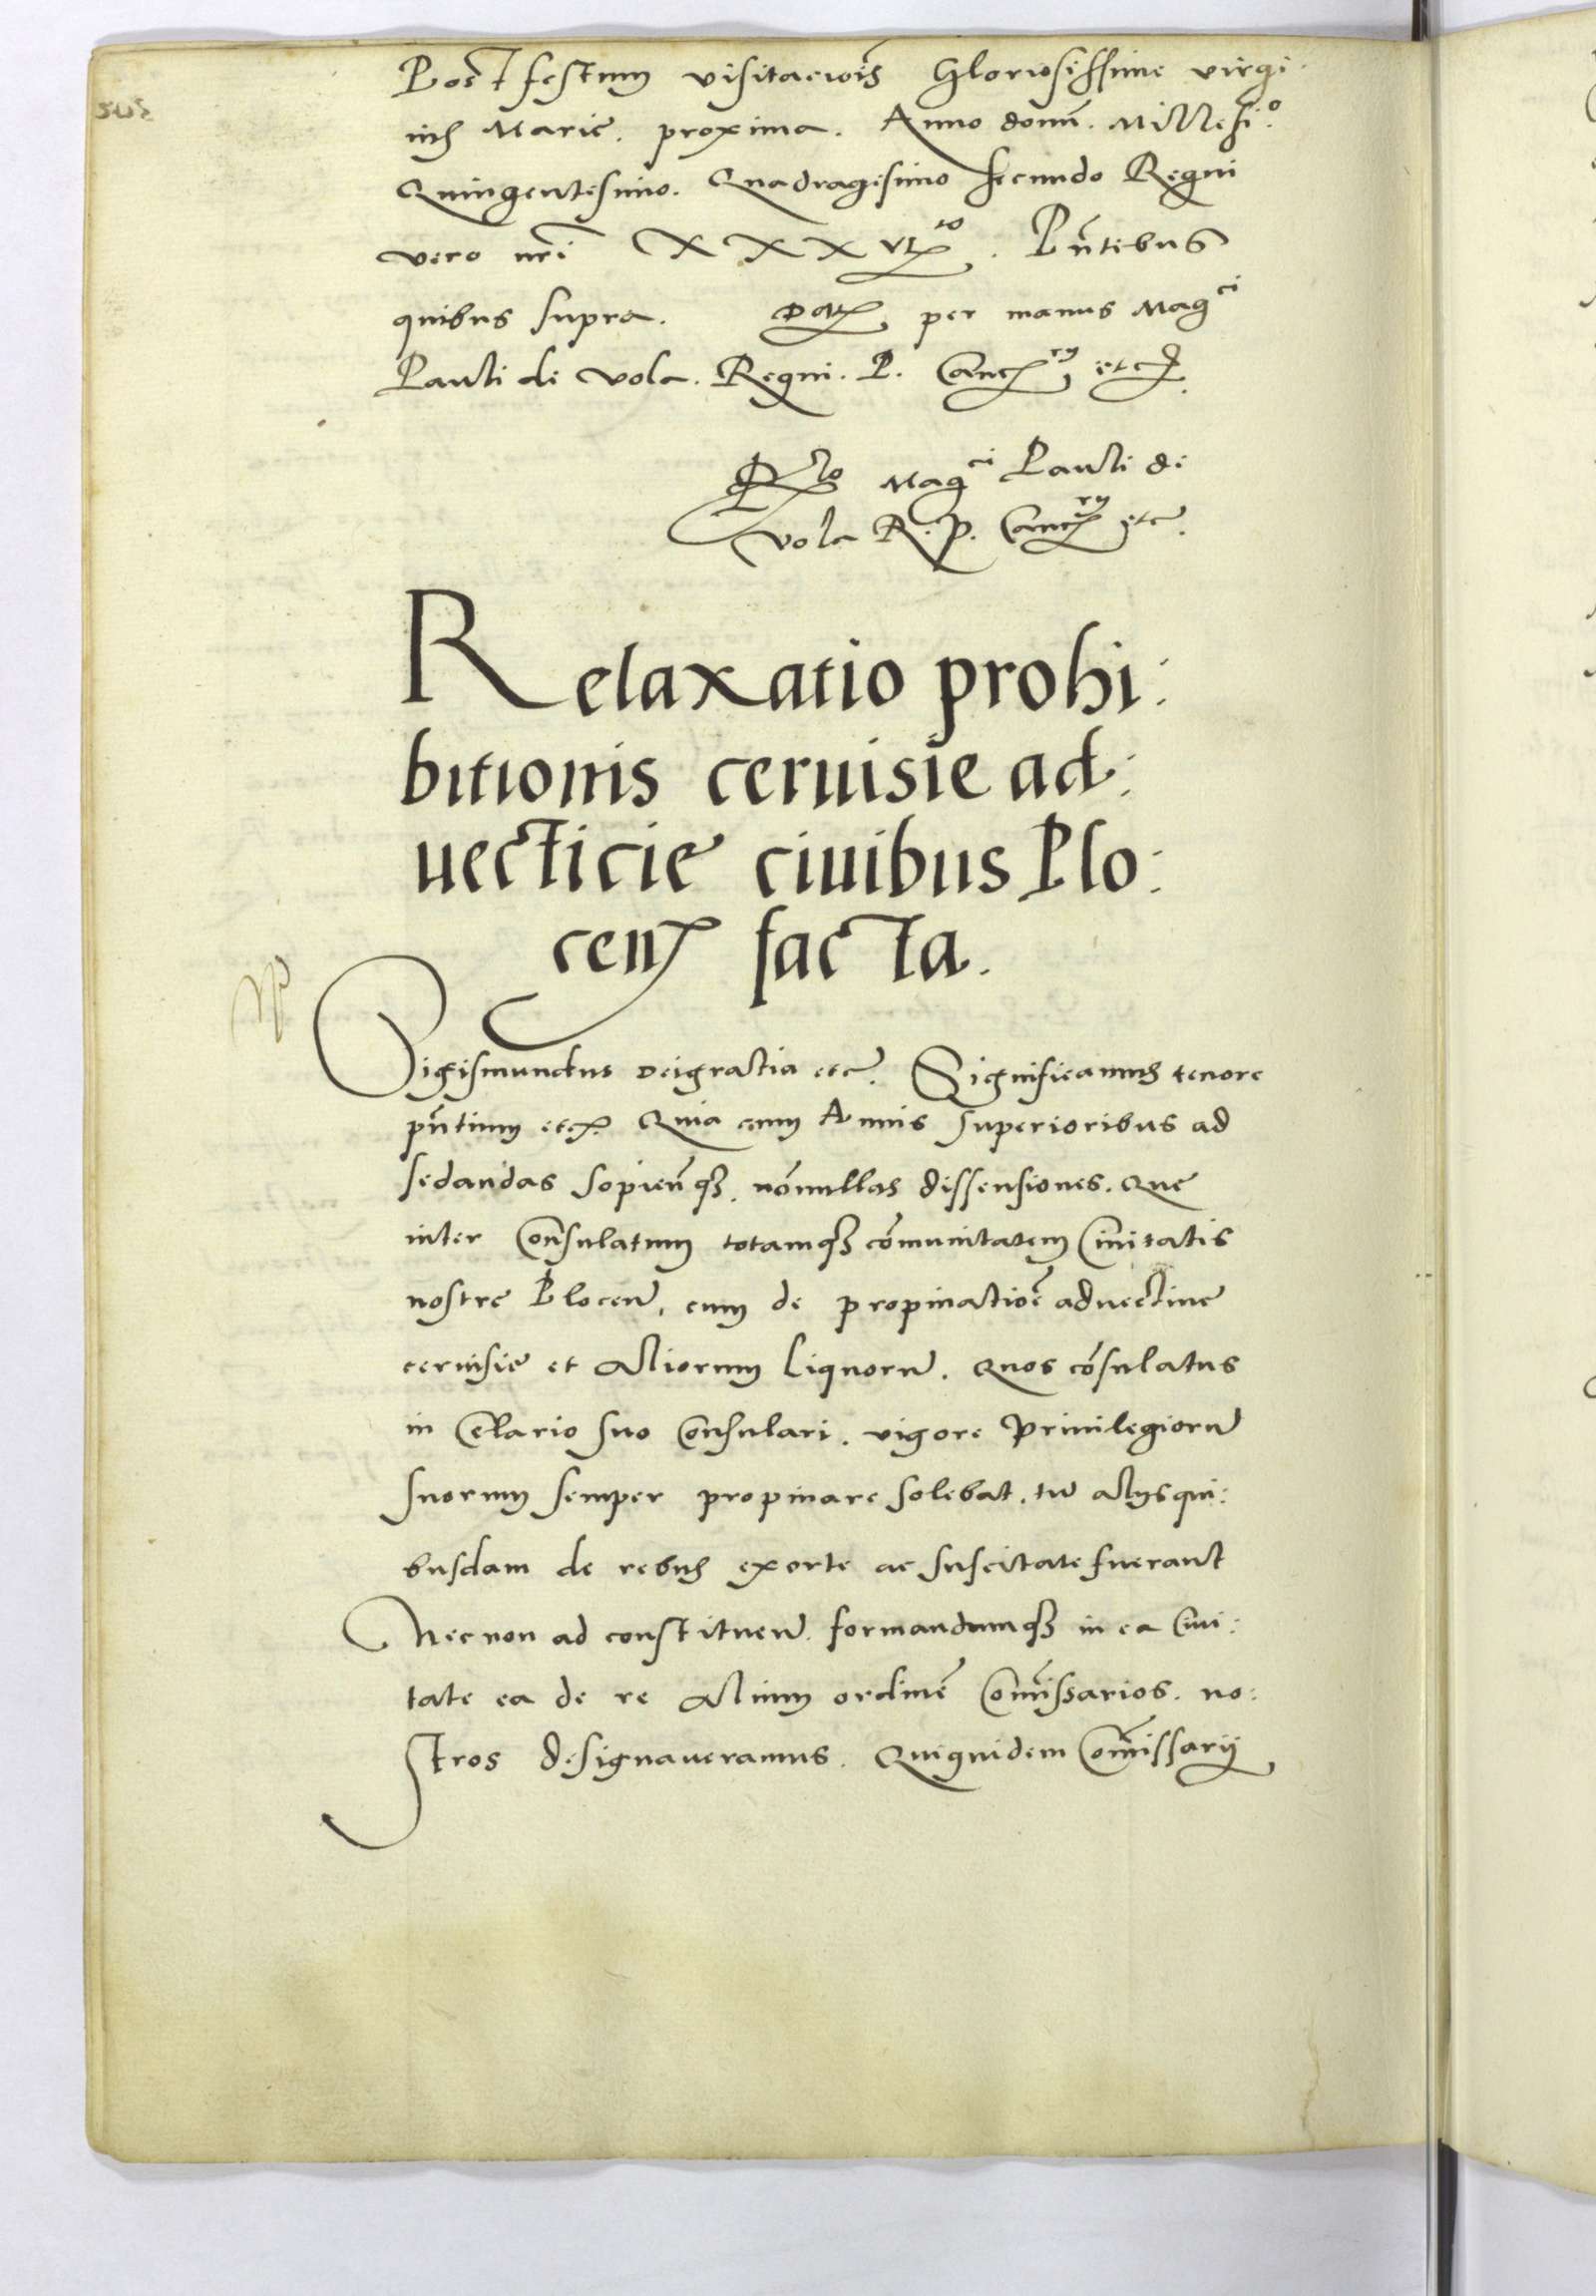 Post festum visitacio͞is Gloriosissime virgi
nis Marie. proxima. Anno domi͞. Millesi͏ᵒ
Quingentesimo. Quadragesimo secundo Regni
vero nr͞i XXXVtᵗᵒ. Pn͞tibus
quibus supra. Dat, per manus Magᶜⁱ
Pauli de Vola. Regni. P. Cancʳʸ etc.
Rᵗᵒ Magᶜⁱ Pauli de
Vola R. P. Cancʳʸ etc.
Relaxatio prohi:
bitionis ceruisie ad:
uecticie ciuibus Plo:
cen facta.
Sigismundus Dei gratia etc. Significamus tenore
pn͞tium etc. Quia cum Annis superioribus ad
sedandas sopien͞qꝫ. no͞nullas dissensiones. Que
inter Consulatum totamqꝫ co͞munitatem Ciuitatis
nostre Plocen̄, cum de propinatio͞e aduecticie
ceruisie et Aliorum Liquoru͞. Quos co͞sulatus
in Celario suo Consulari. vigore Priuilegioru͞
suorum semper propinare solebat. tu͞ Alijs qui:
busdam de rebus exorte ac suscitate fuerant
Nec non ad constituen͞. formandumqꝫ in ea Ciui:
tate ea de re Alium ordine͞ Com͞issarios. no:
stros designaueramus. Quiquidem Com͞issarij